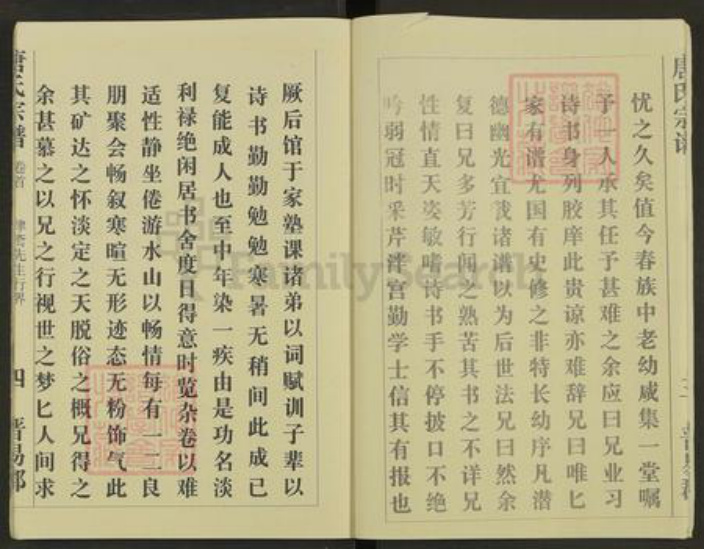 忧之久矣值今春族中老幼咸集一堂嘱
予一人承其任予甚难之余应曰兄业习
诗书身列胶庠此贵谅亦难辞兄曰唯匕
家有谱尤国有史修之非特长幼序凡潜
德幽光宜载诸谱以为后世法兄曰然余
复曰兄多芳行闻之熟苦其书之不详兄
性情直天姿敏嗜诗书手不停披口不绝
吟弱冠时采芹泮宫勤学士信其有报也
厥后馆于家塾课诸弟以词赋训子辈以
诗书勤勤勉勉寒暑无稍间此成已
复能成人也至中年染一疾由是功名淡
利禄绝闲居书舍度日得意时览杂卷以难
适性静坐倦游水山以畅情每有一二良
朋聚会畅叙寒暄无形迹态无粉饰气此
其矿达之怀淡定之天脱俗之概兄得之
余甚慕之以兄之行视世之梦匕人间求
唐氏宗谱
卷首
先生行界
四
晋易郡
唐氏宗谱
FamilySearch